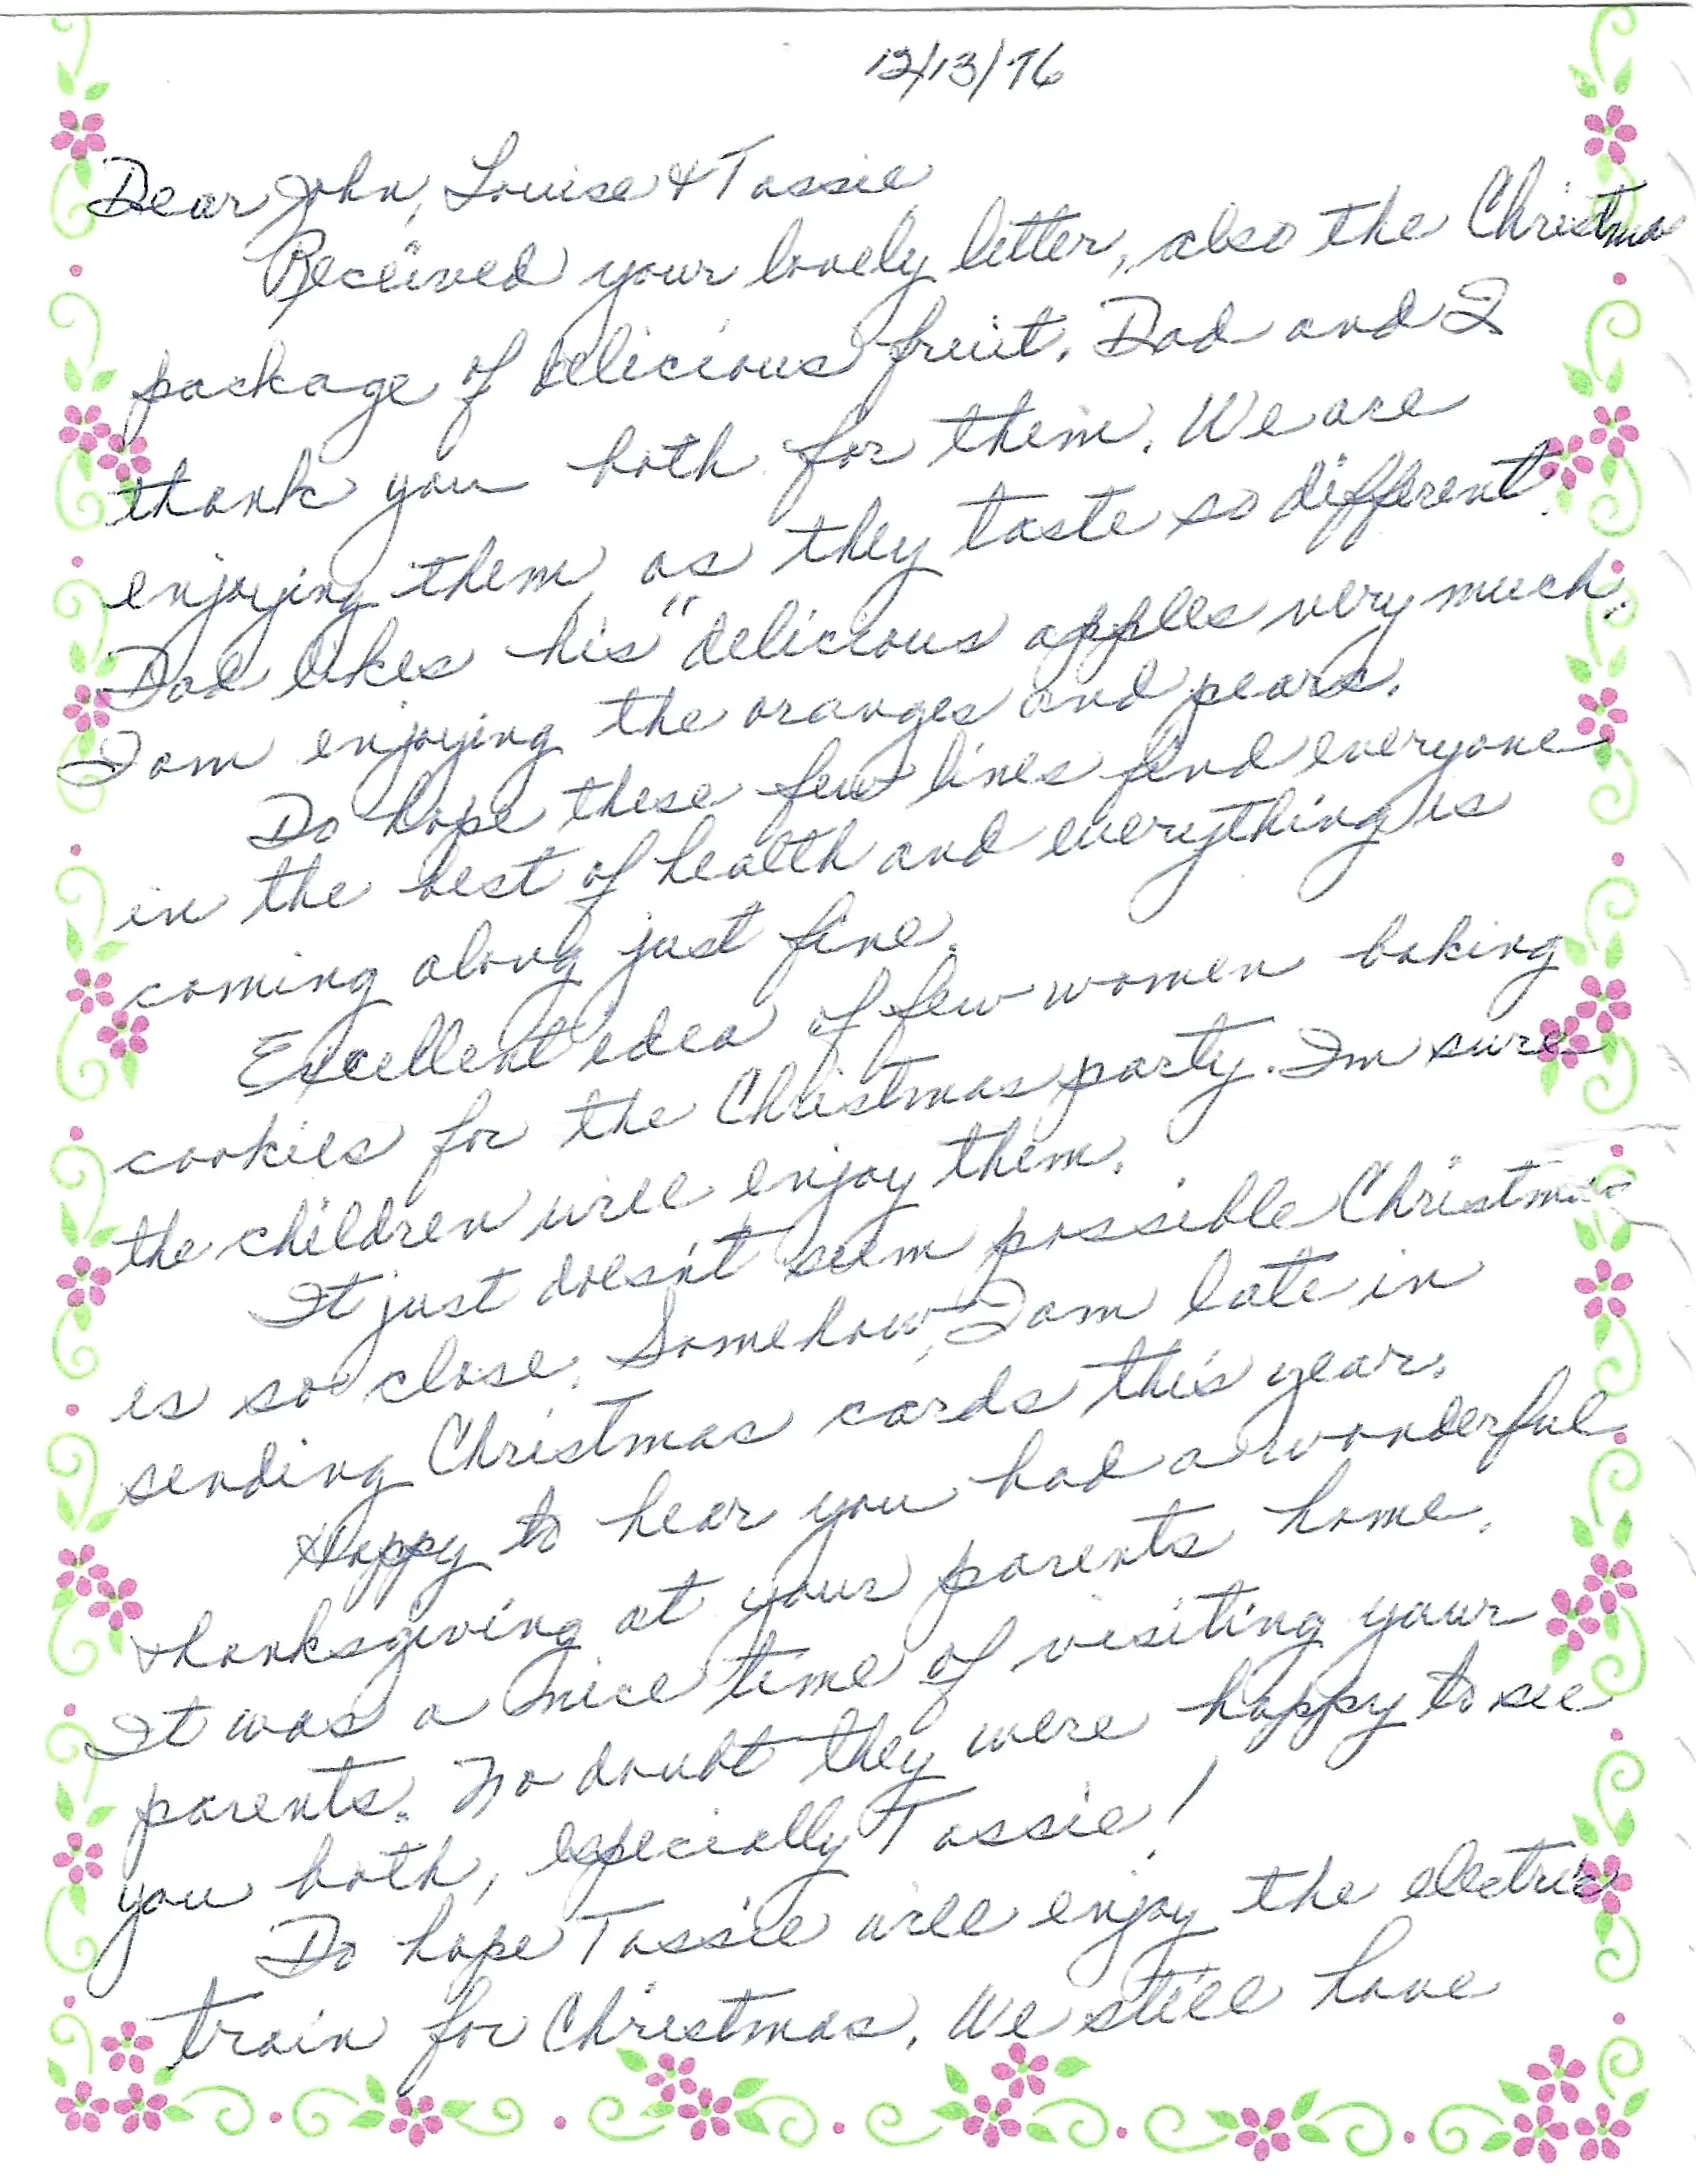 12/13/76
Dear John, Louise & Tassie,
Received your lovely letter, also the Christmas
package of delicious fruit. Dad and I
thank you both for them. We are
enjoying them, as they taste so different.
Dad likes his "delicious apples very much.
I am enjoying the oranges and pears.
Do hope these few lines find everyone
in the best of health and everything is
coming along just fine.
Excellent idea of few women baking
cookies for the Christmas party. Im sure
the children will enjoy them.
It just doesn't seem possible Christmas
is so close. Somehow, I am late in
sending Christmas cards this year.
Happy to hear you had a wonderful
Thanksgiving at your parents home.
It was a nice time of visiting your
parents. No doubt they were happy to see
you both, especially Tassie!
Do hope Tassie will enjoy the electric
train for Christmas. We still have